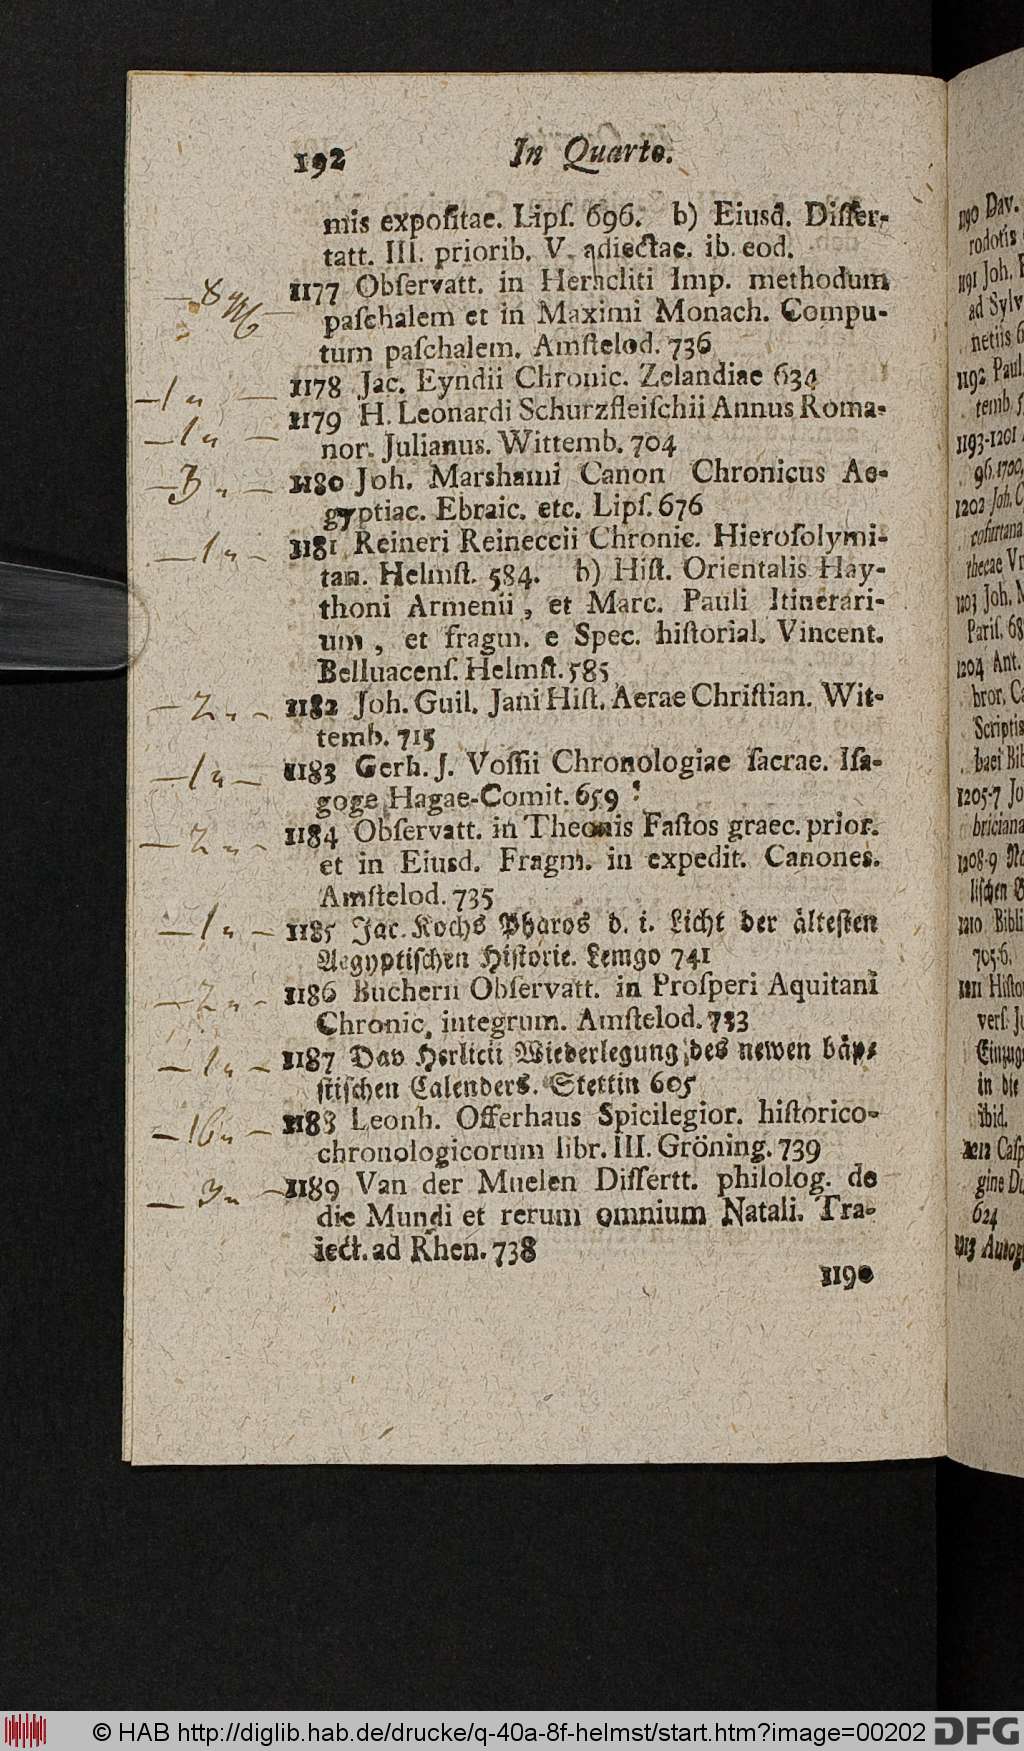 192 In Quarto.
mis expositae. Lipſ. 696. b) Eiusd. Diſſer-
tatt. III. priorib. V. adiectae. ib. eod.
1177 Obſervatt. in Heracliti Imp. methodum
paſchalem et in Maximi Monach. Compu-
tum paſchalem. Amſtelod. 736
— 1 — 1178 Jac. Eyndii Chronic. Zelandiae 634
— 1 — 1179 H. Leonardi Schurzfleiſchii Annus Roma-
nor. Julianus. Wittemb. 704
— 3 — 1180 Joh. Marshami Canon Chronicus Ae-
gyptiac. Ebraic. etc. Lipſ. 676
— 1 — 1181 Reineri Reineccii Chronic. Hieroſolymi-
tan. Helmſt. 584. b) Hiſt. Orientalis Hay-
thoni Armenii, et Marc. Pauli Itinerari-
um, et fragm. e Spec. hiſtorial. Vincent.
Belluacenſ. Helmſt. 585
— 2 — 1182 Joh. Guil. Jani Hiſt. Aerae Chriſtian. Wit-
temb. 715
— 1 — 1183 Gerh. J. Voſſii Chronologiae ſacrae. Iſa-
goge Hagae-Comit. 659
— 2 — 1184 Obſervatt. in Theonis Faſtos graec. prior.
et in Eiusd. Fragm. in expedit. Canones.
Amſtelod. 735
— 1 — 1185 Jac. Kochs Pharos d. i. Licht der älteſten
Aegyptiſchen Hiſtorie. Lemgo 741
— 2 — 1186 Bucherii Obſervatt. in Proſperi Aquitani
Chronic. integrum. Amſtelod. 733
— 1 — 1187 Dav Herlicii Wiederlegung des newen bäp-
ſtiſchen Calenders. Stettin 605
— 16 — 1188 Leonh. Offerhaus Spicilegior. hiſtorico-
chronologicorum libr. III. Gröning. 739
— 3 — 1189 Van der Muelen Diſſertt. philolog. de
die Mundi et rerum omnium Natali. Tra-
iect. ad Rhen. 738
1190
1190 Dav.
rodotis
1191 Joh.
ad Sylv
netiis 6
1192 Paul
temb.
1193-1201
96. 1700.
1202 Joh.
thecae
1203 Joh.
Pariſ. 68
1204 Ant.
bror. Ca
Scriptis
baei Bib
1205-7 Jo
briciana
1208-9
liſchen
1210 Bibli
705-6.
1211 Hiſto
verſ. J
Einzug
in die
ibid.
1212 Caſp
gine
624
1213 Autog
© HAB http://diglib.hab.de/drucke/q-40a-8f-helmst/start.htm?image=00202 DFG